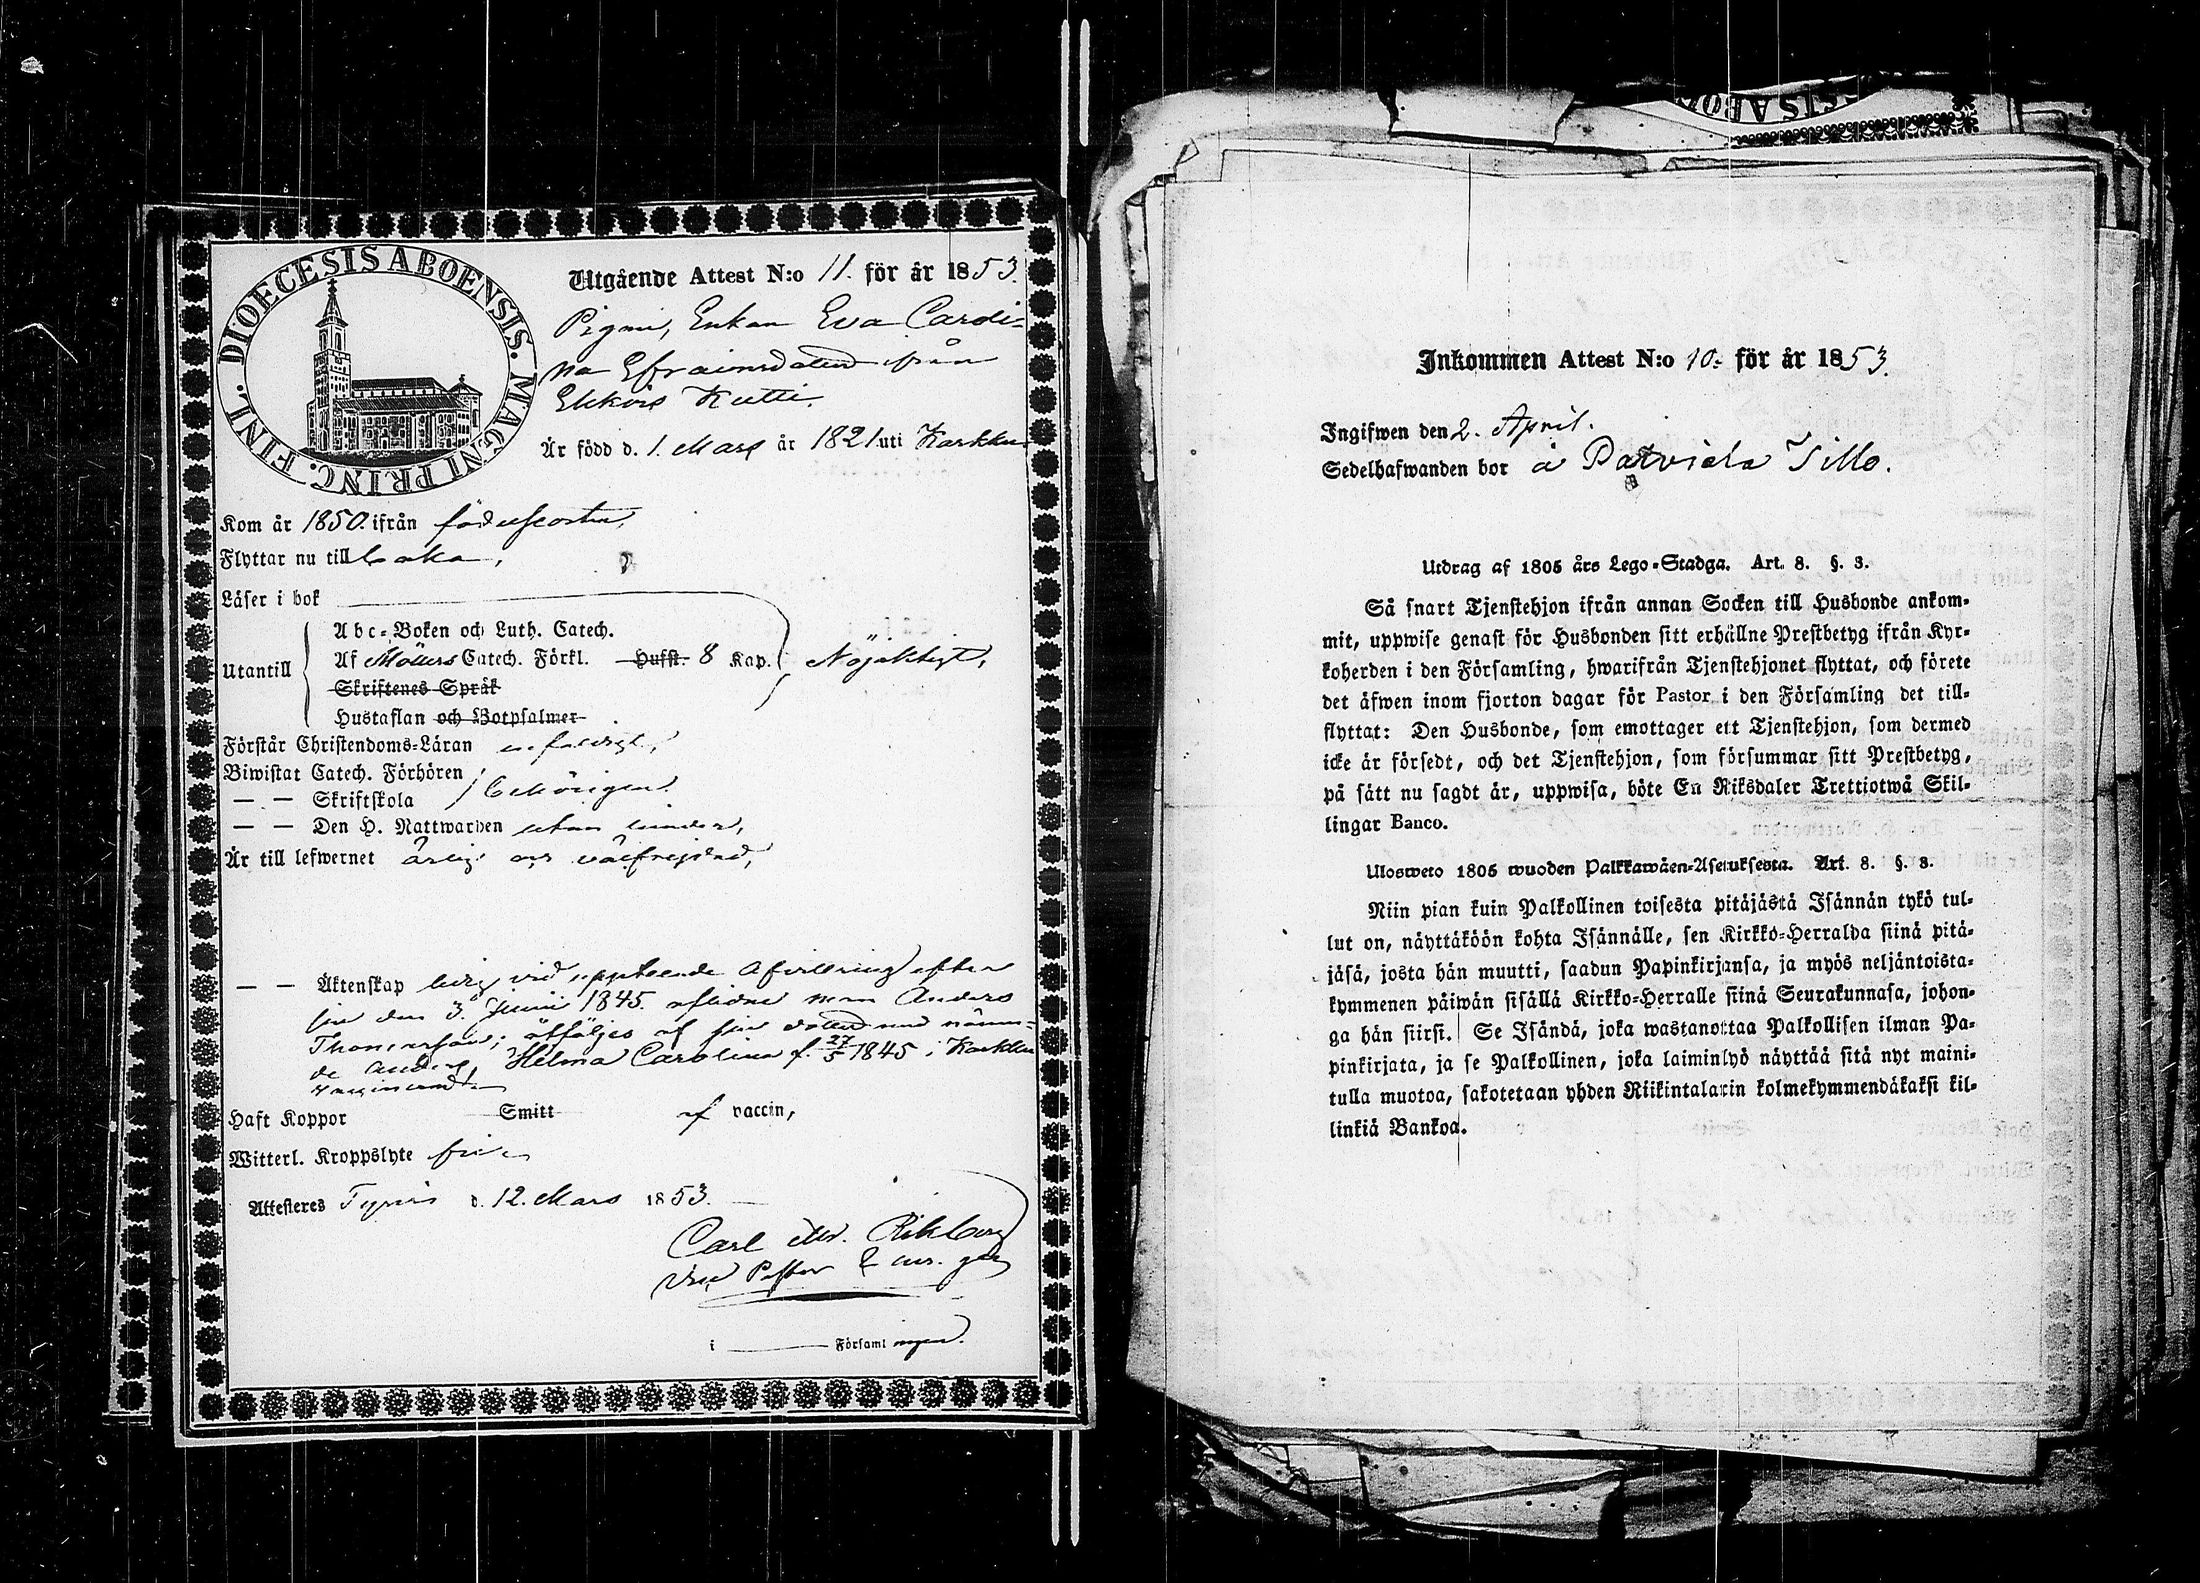 DIOECESIS ABOENSIS. MAGNI PRINC. FINL.
Utgående Attest N:o 11. för år 1853.
Pigan, Enkan Eva Caroli-
na Efraimsdotter ifrån
Ekkois Kutti.
Är född d. 1. Mars år 1821 uti Karkku
Kom år 1850. ifrån födelseorten,
Flyttar nu till Loko,
Läser i bok
Abc-Boken och Luth. Catech.
Utantill Af Möllers Catech. Förkl. Hufst. 8 Kap. Nöjaktigt,
Skriftenes Språk
Hustaflan och Botpsalmer
Förstår Christendoms-Läran enfaldigt,
Biwistat Catech. Förhören
— — Skriftskola behörigen.
— — Den H. Nattwarden utan hinder,
Är till lefwernet ärlig och välfrejdad,
— — Äktenskap ledig vid uppteende afvittring efter
sin den 3. Junii 1845. aflidne man Anders
Thomasson; åtföljes af sin dotter med nämn-
de Anders, Helma Carolina f. 27/5 1845 i Karkku
vaccinerad.
Haft Koppor Smitt af vaccin,
Witterl. Kroppslyte fri.
Attesteres Tyrvis d. 12. Mars 1853.
Carl M. Rikberg
Vice Pastor
i Församlingen.
CISIS ABO
Inkommen Attest N:o 10. för år 1853.
Ingifwen den 2. April.
Sedelhafwanden bor å Tillo.
Utdrag af 1805 års Lego-Stadga. Art. 8. §. 3.
Så snart Tjenstehjon ifrån annan Socken till Husbonde ankom-
mit, uppwise genast för Husbonden sitt erhållne Prestbetyg ifrån Kyr-
koherden i den Församling, hwarifrån Tjenstehjonet flyttat, och förete
det äfwen inom fjorton dagar för Pastor i den Församling det till-
flyttat: Den Husbonde, som emottager ett Tjenstehjon, som dermed
icke är försedt, och det Tjenstehjon, som försummar sitt Prestbetyg,
på sätt nu sagdt är, uppwisa, böte En Riksdaler Trettiotwå Skil-
lingar Banco.
Ulosweto 1805 wuoden Palkkawäen-Asetuksesta. Art. 8. §. 3.
Niin pian kuin Palkollinen toisesta pitäjästä Isännän tykö tul-
lut on, näyttäköön kohta Isännälle, sen Kirkko-Herralda siinä pitä-
jäsä, josta hän muutti, saadun Papinkirjansa, ja myös neljäntoista-
kymmenen päiwän sisällä Kirkko-Herralle siinä Seurakunnasa, johon-
ga hän siirsi. Se Isändä, joka wastanottaa Palkollisen ilman Pa-
pinkirjata, ja se Palkollinen, joka laiminlyö näyttää sitä nyt maini-
tulla muotoa, sakotetaan yhden Riikintalarin kolmekymmendäkaksi kil-
linkiä Bankoa.